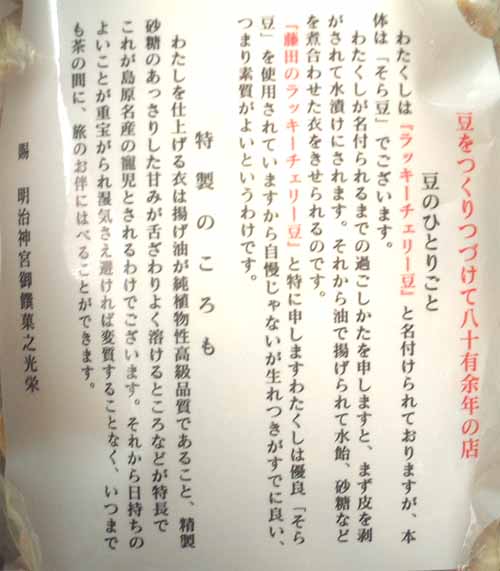 豆をつくりつづけて八十有余年の店
豆のひとりごと
わたくしは『ラッキーチェリー豆』と名付けられておりますが、本
体は「そら豆」でございます。
わたくしが名付けられるまでの過ごしかたを申しますと、まず皮を剥
がされて水漬けにされます。それから油で揚げられて水飴、砂糖など
を煮合わせた衣をきせられるのです。
『藤田のラッキーチェリー豆』と特に申しますわたくしは優良「そら
豆」を使用されていますから自慢じゃないが生れつきがすでに良い、
つまり素質がよいというわけです。
特製のころも
わたしを仕上げる衣は揚げ油が純植物性高級品質であること、精製
砂糖のあっさりした甘みが舌ざわりよく溶けるところなどが特長で
これが島原名産の寵児とされるわけでございます。それから日持ちの
よいことが重宝がられ湿気さえ避ければ変質することなく、いつまで
も茶の間に、旅のお伴にはべることができます。
賜　明治神宮御饌菓之光栄